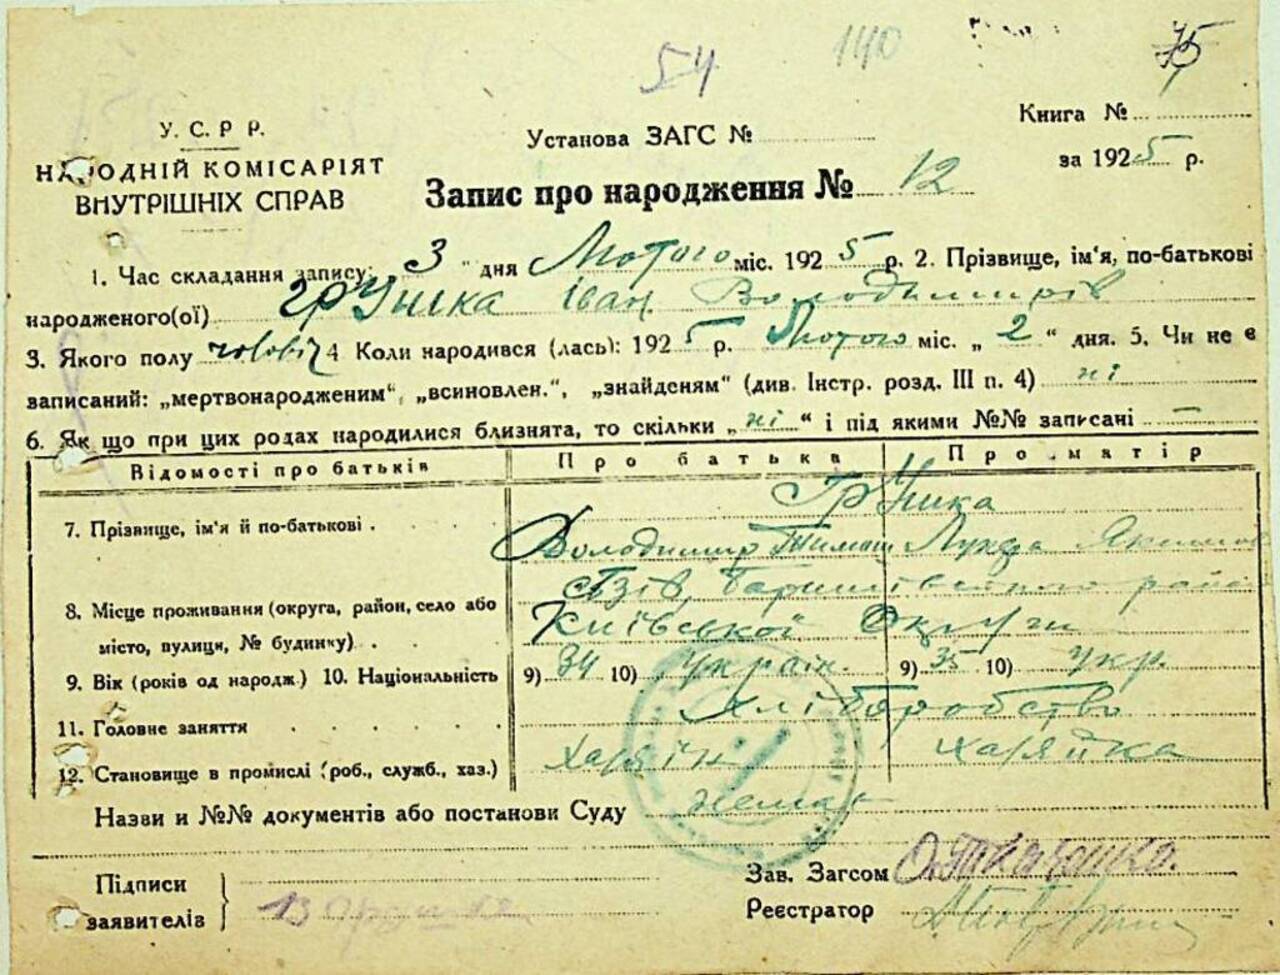 54 140 75
У. С. Р Р.
НАРОДНІЙ КОМІСАРІЯТ
ВНУТРІШНІХ СПРАВ
Установа ЗАГС №
Книга №
за 1925 р.
Запис про народження № 12
1. Час складання запису: 3 " дня Лютого міс. 1925 р. 2. Прізвище, ім'я, по-батькові
народженого(ої) Грушка Іван Володимирів
3. Якого полу чоловіч 4 Коли народився (лась): 1925 р. Лютого міс. „ 2 " дня. 5. Чи не є
записаний: „мертвонародженим", „всиновлен.", „знайденям" (див. Інстр. розд. III п. 4) ні
6. Як що при цих родах народилися близнята, то скільки „ ні " і під якими №№ записані —
Відомості про батьків Про батька Про матір
Грушка
7. Прізвище, ім'я й по-батькові . Володимир Тимош Лукера Якимов
8. Місце проживання (округа, район, село або Баришівського рай
місто, вулиця, № будинку) . Київської Округи
9. Вік (років од народж) 10. Національність 9) 34 10) Україн. 9) 35 10) Укр.
11. Головне заняття Хліборобство
12. Становище в промислі (роб., служб., хаз.) Хазяїн Хазяйка
Назви и №№ документів або постанови Суду немає
Підписи
заявителів
Зав. Загсом О. Ткаченко.
Реєстратор